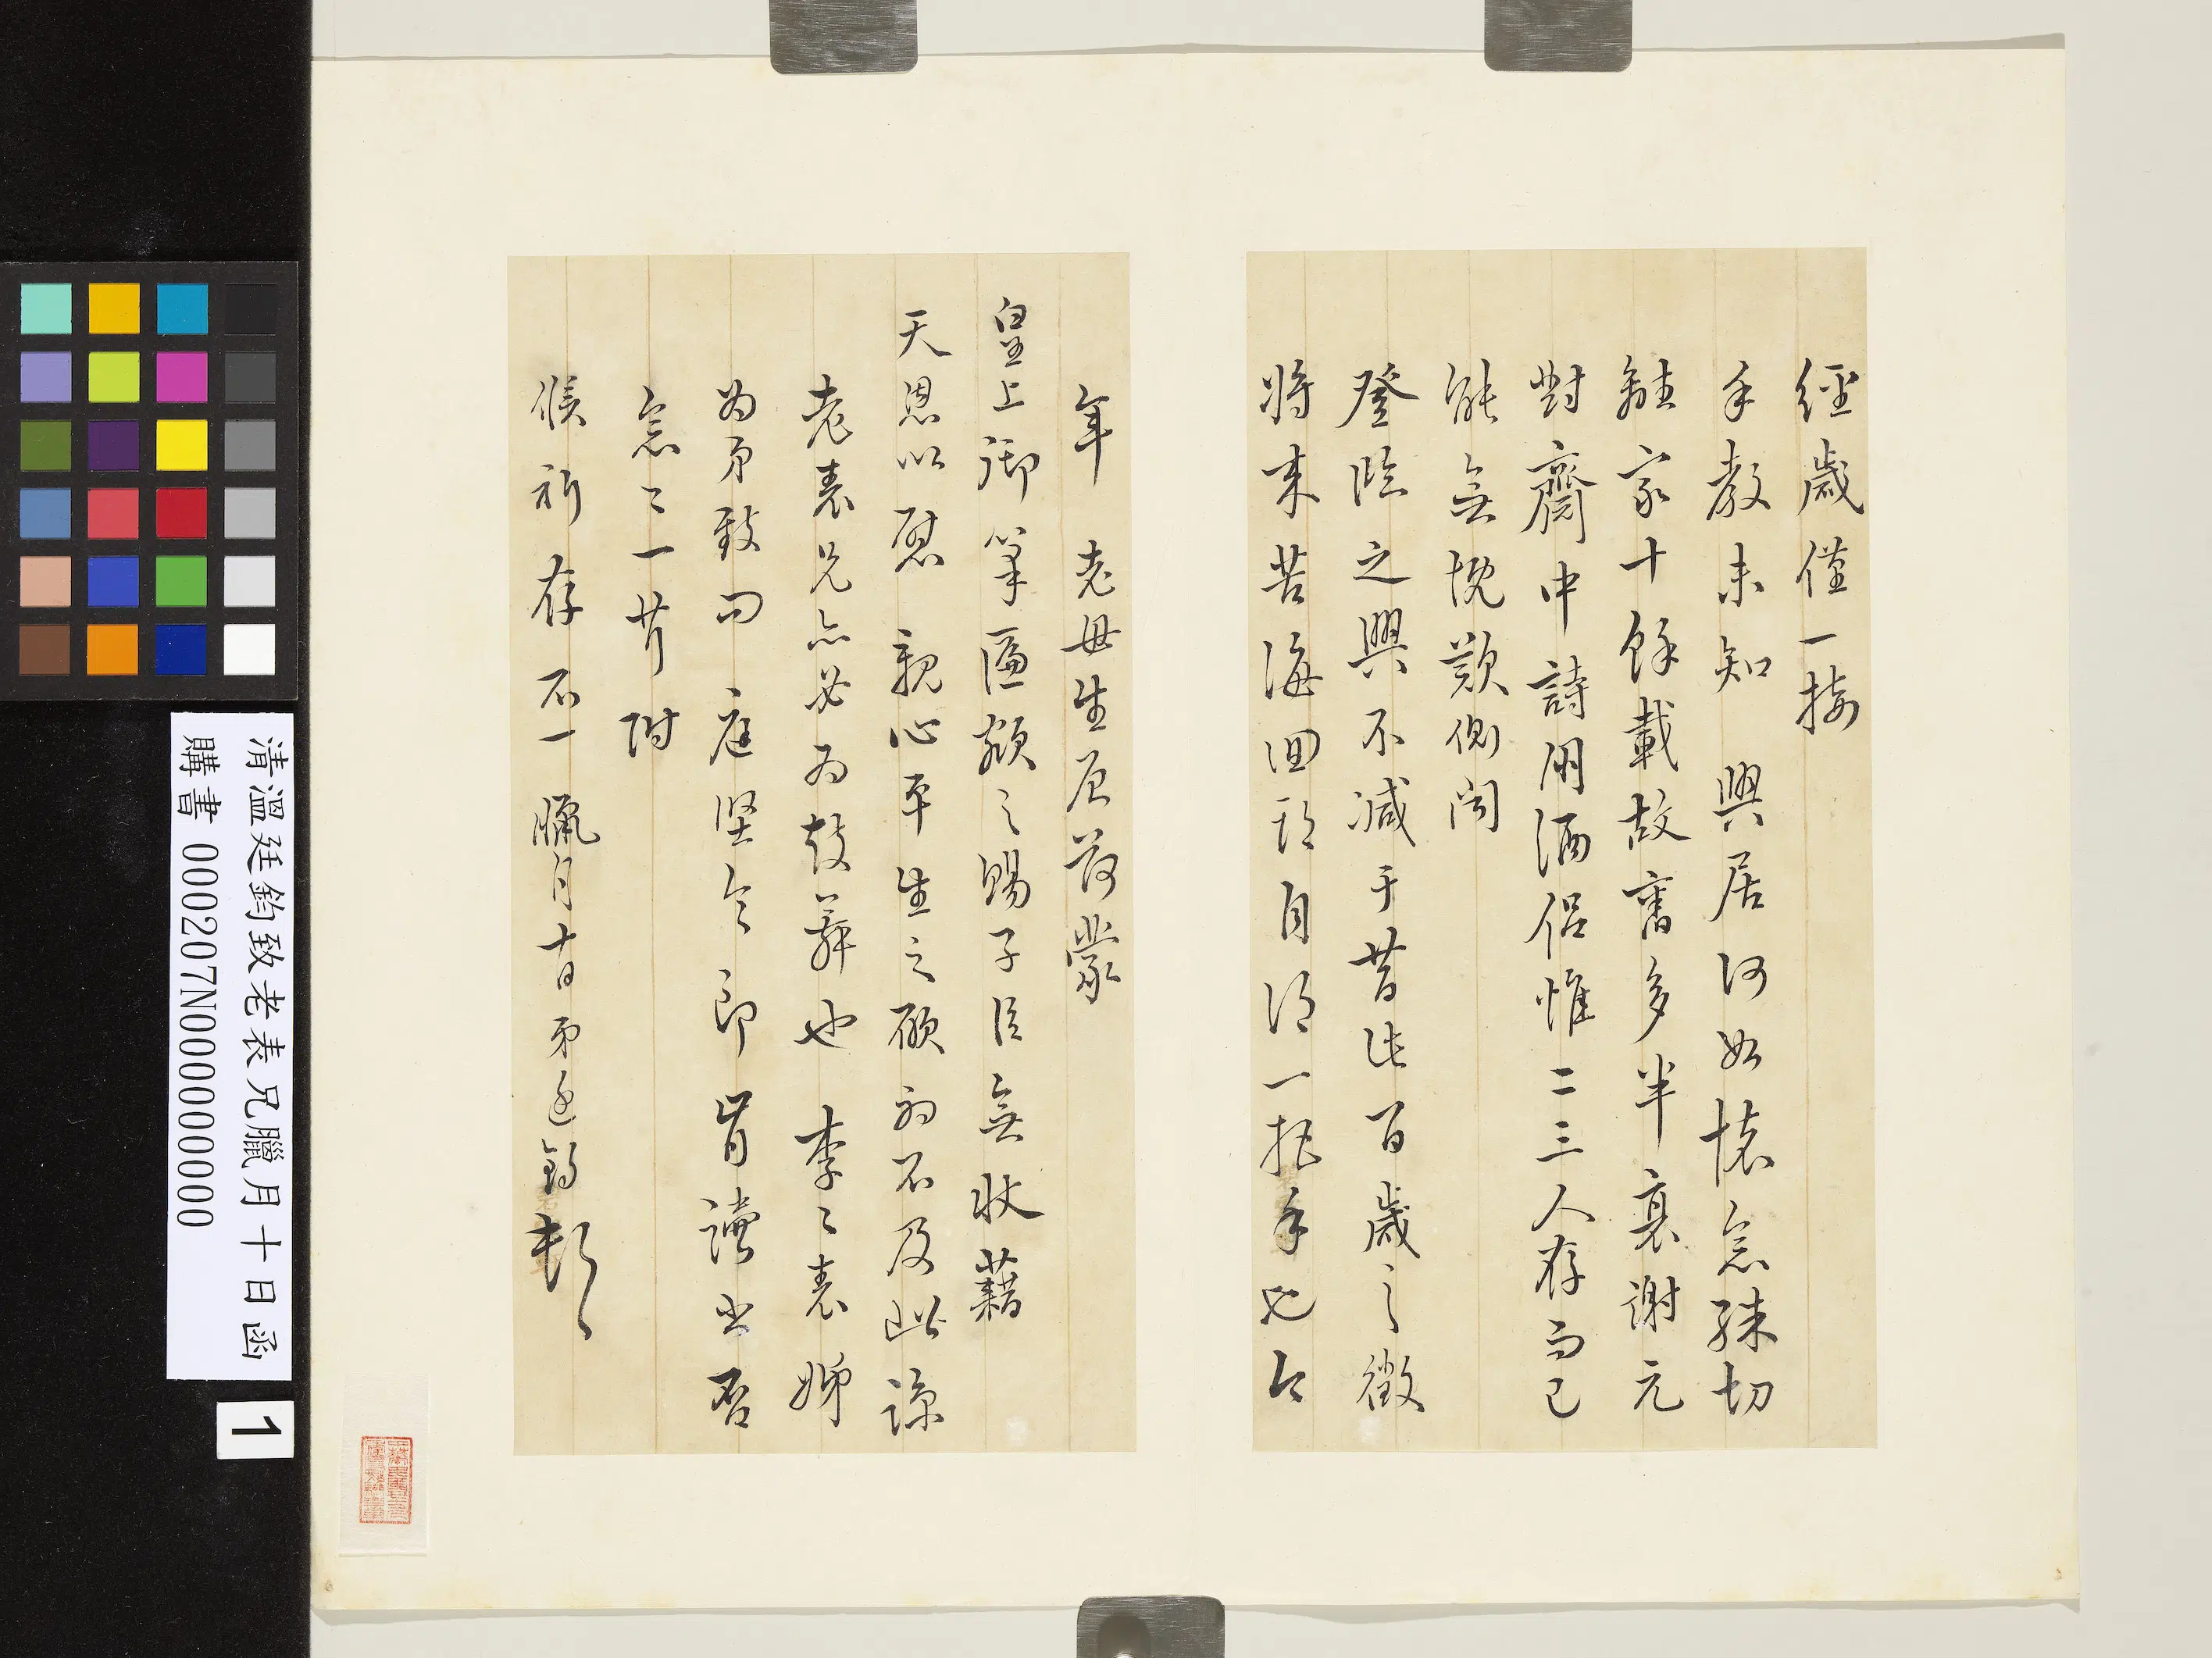 經歲僅一接
手教未知 興居何如懷念殊切
離家十餘載故舊多半衰謝元
對齋中詩朋酒侶惟二三人存而已
能無悅歎側聞
登臨之興不減于昔此百歲之徵
將來苦海回頭自須一把手也今
年 老母生辰荷蒙
皇上御筆匾額之賜子臣無狀藉
天恩以慰 親心平生之願初不及此諒
老表兄亦必為鼓舞也 李二表姊
為弟致問 庭堅令郎 肯讀書否
念二一芹附
候祈存不一 臘月十日弟廷鈞頓
清溫廷鈞致老表兄臘月十日函
購書 000207N000000000
1